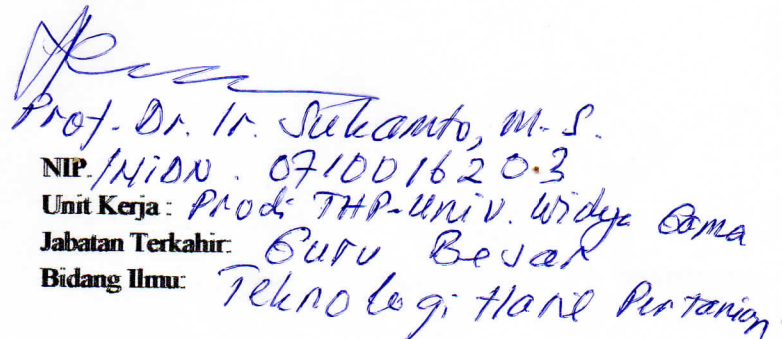 Prof. Dr. Ir. Sukamto, M.S.
NIP./NiDN. 0710016203
Unit Kerja: Prodi THP-Univ. Widya Gama
Jabatan Terkahir: Guru Besar
Bidang Ilmu: Teknologi Hasil Pertanian